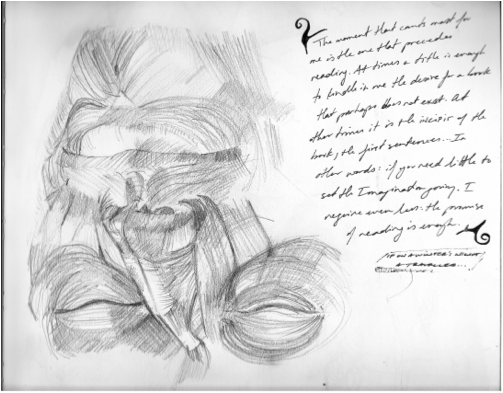 The moment that counts most for
me is the one that precedes
reading. At times a title is enough
to kindle in me the desire for a book
that perhaps does not exist. At
other times it is the incipit of the
book, the first sentences... In
other words: if you need little to
set the imagination going, I
require even less: the promise
of reading is enough.
IF ON A WINTER'S NIGHT
A TRAVELER...